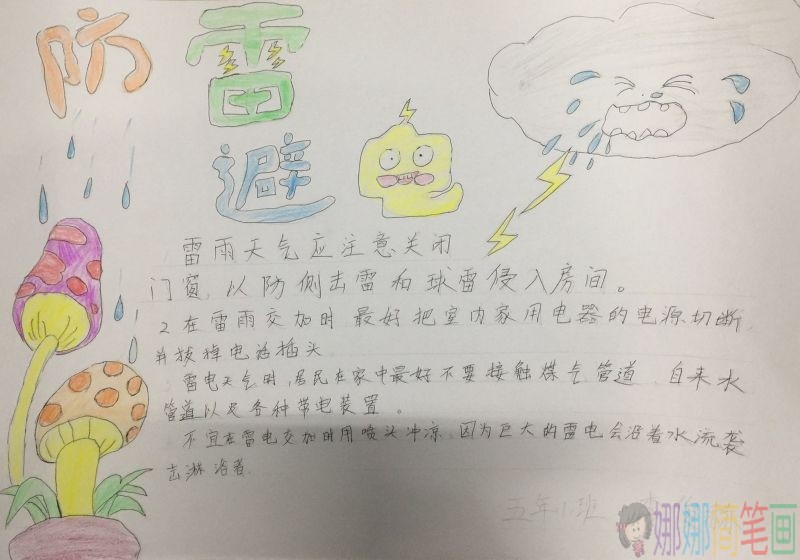 防雷
避电
雷雨天气应注意关闭
门窗,以防侧击雷和球雷侵入房间。
2在雷雨交加时最好把室内家用电器的电源切断,
并拔掉电话插头
雷电天气时,居民在家中最好不要接触煤气管道、自来水
管道以及各种带电装置。
不宜在雷电交加时用喷头冲凉,因为巨大的雷电会沿着水流袭
击淋浴者.
五年小班
娜娜替笔画